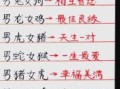 男龙女鸡→最佳良缘
男虎女豬→天生一对
男蛇女猴→一生最爱
男猪女虎→幸福美满